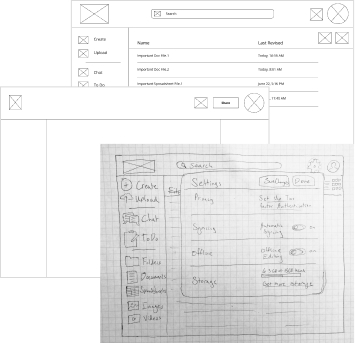 Search
Create
Upload
Chat
To Do
Name
Last Revised
Important Doc File 1
Today, 10:56 AM
Important Doc File 2
Today, 8:01 AM
Important Spreadsheet File 1
June 22, 5:36 PM
Share
Search
Create
Upload
Chat
ToDo
Folders
Documents
Images
Videos
Settings
Save Changes
Done
Privacy
Set Up Two
Factor Authentication
Syncing
Automatic
Syncing
Offline
Offline
Editing
Storage
Get More Storage